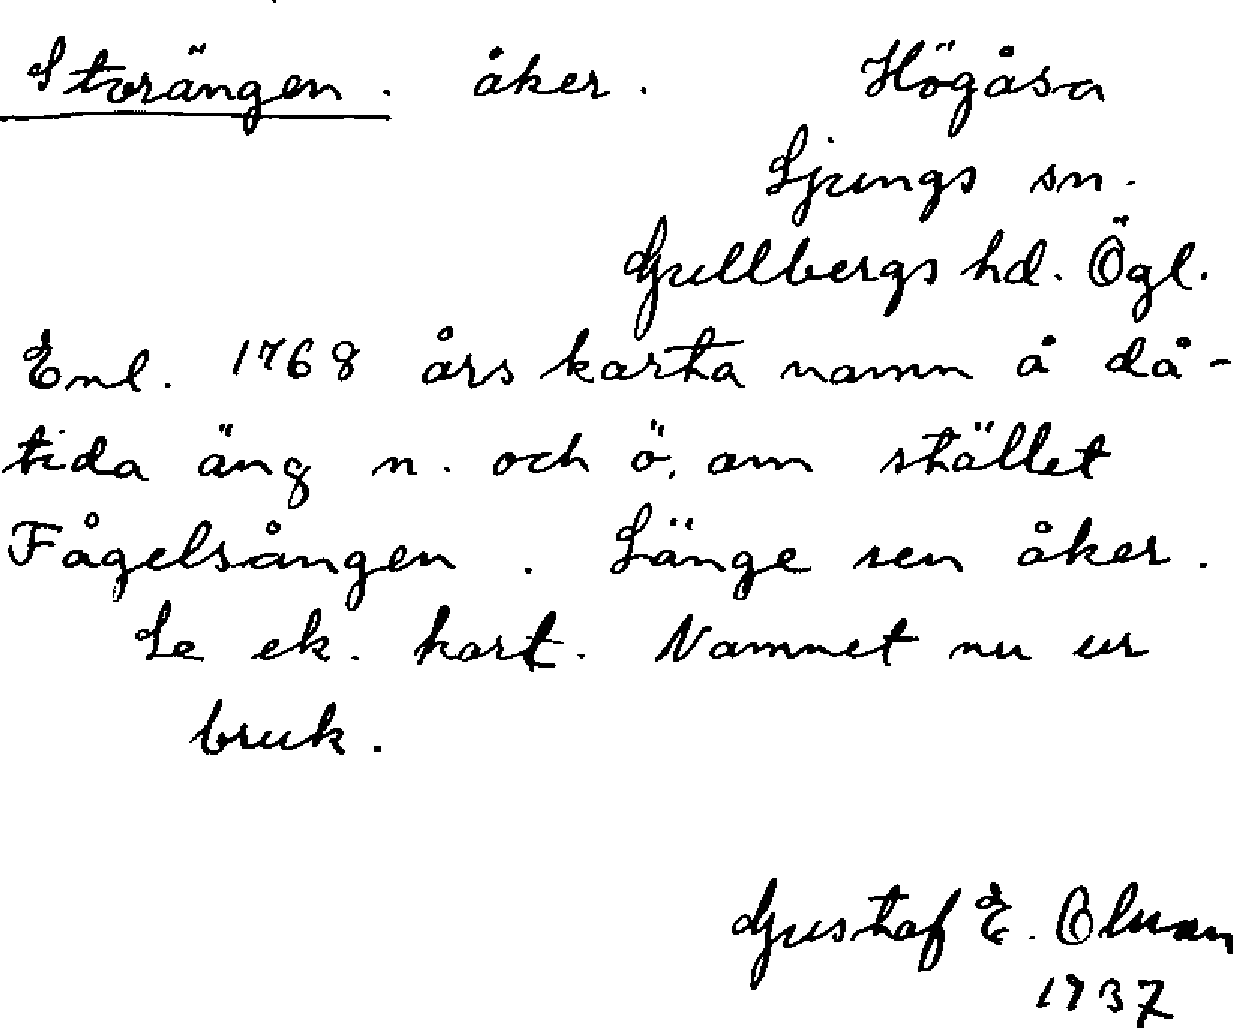 Storängen. åker. Högåsa
Ljungs sn.
Gullbergs hd. Ögl.
Enl. 1768 års karta namn å då-
tida äng n. och ö. om stället
Fågelsången. Länge sen åker.
Se ek. kart. Namnet nu ur
bruk.
Gustaf E.
1937